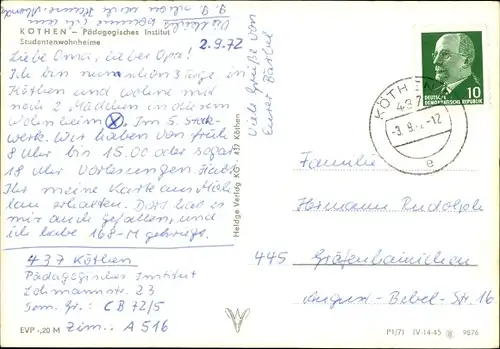 KÖTHEN — Pädagogisches Institut
Studentenwohnheime
2.9.72
Liebe Oma, lieber Opa!
Ich bin nun schon 3 Tage in
Köthen und wohne mit
noch 2 Mädchen in diesem
Wohnheim. Im 5. Stock-
werk. Wir haben von früh
8 Uhr bis 15.00 oder sogar
18 Uhr Vorlesungen. Habt
Ihr meine Karte aus
erhalten. Dort hat es
mir auch gefallen, und
ich habe 168,-M gekriegt.
Viele Grüße von
Eurer Bärbel
437 Köthen
Pädagogisches Institut
Lohmannstr. 23
Sem. Gr.: CB 72/5
Zim.: A 516
EVP -,20 M
Heldge Verlag KG 437 Köthen
DEUTSCHE
DEMOKRATISCHE REPUBLIK
10
KÖTHEN
437
-3.9.72-12
e
Familie
Hermann Rudolph
445 Gräfenhainichen
August-Bebel-Str. 16
P1/71 IV-14-45 9876